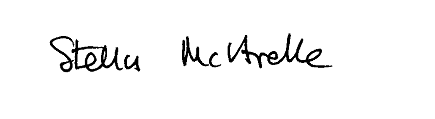 Stella McArelle